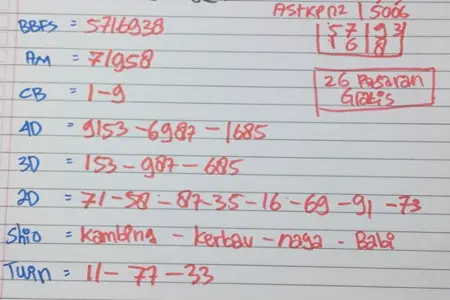 BBFS = 5716938
AM = 71958
CB = 1-9
4D = 9153-6987-1685
3D = 153-987-685
2D = 71-58-87-35-16-69-91-73
Shio = Kambing - kerbau - naga - Babi
Twin = 11-77-33
5006
5 7 | 9 3
1 6 | 8
26 Pasaran
Gratis